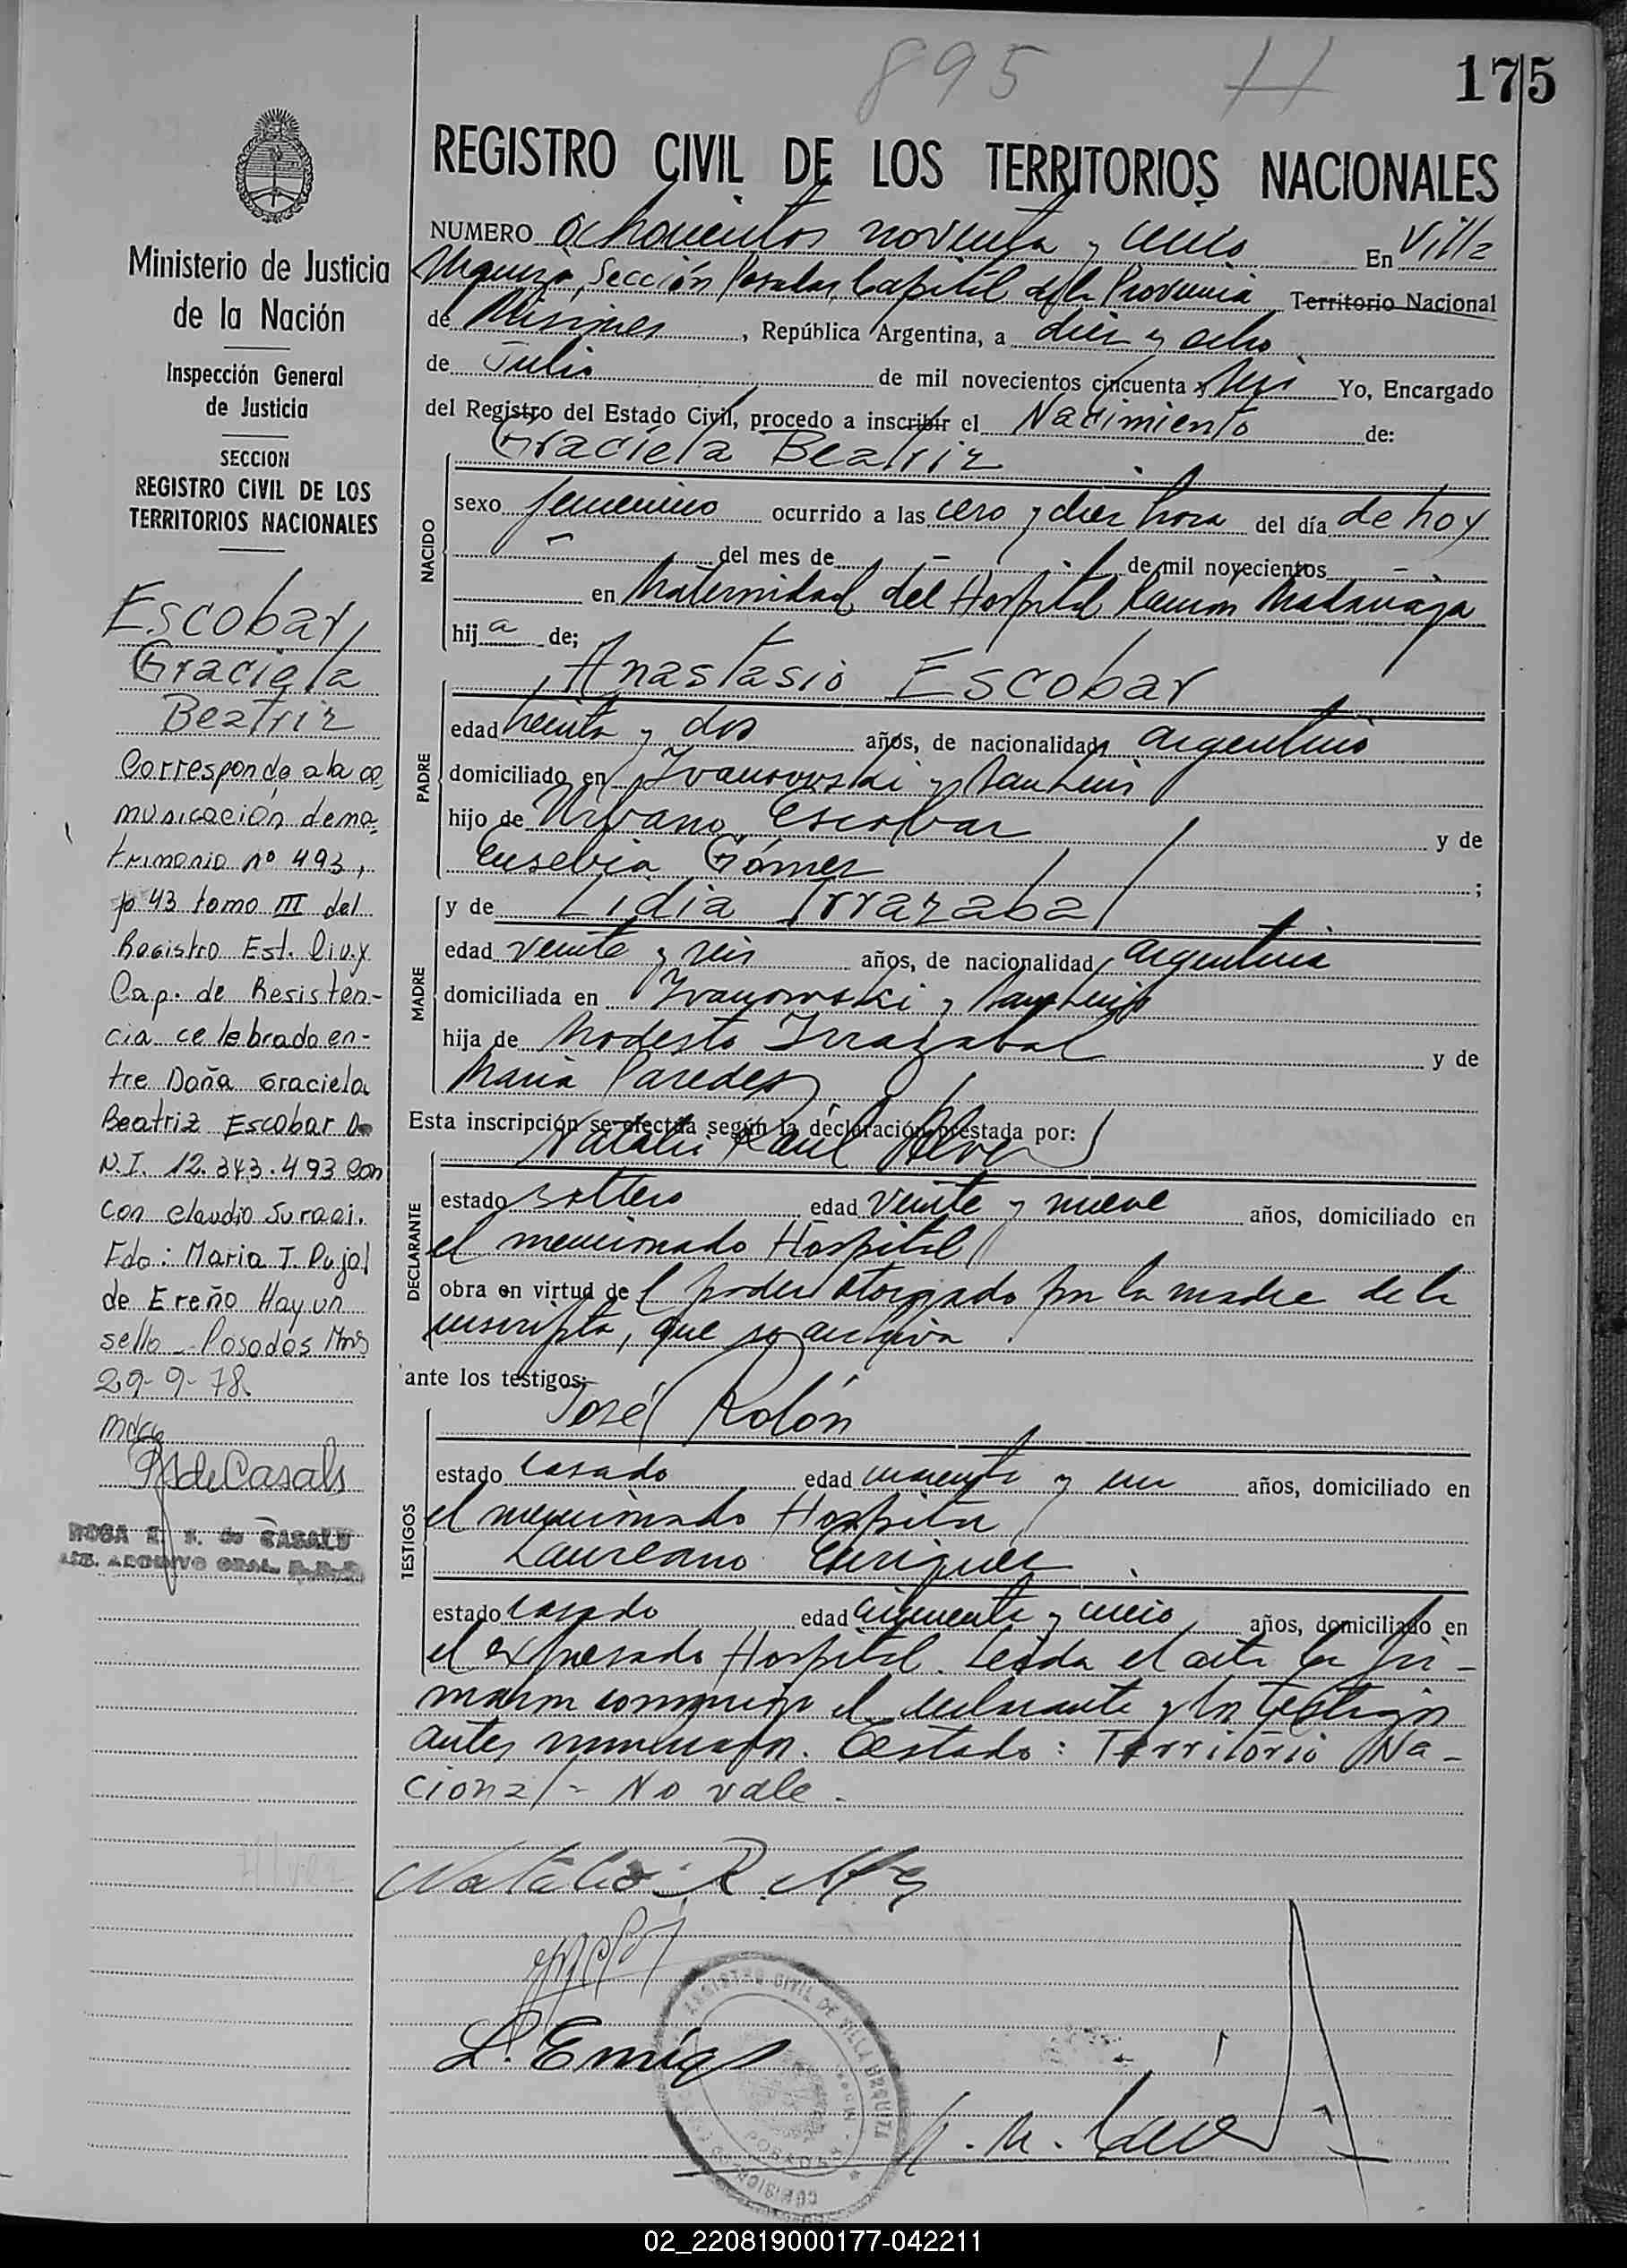 895
175
REGISTRO CIVIL DE LOS TERRITORIOS NACIONALES
NUMERO ochocientos noventa y cinco En Villa
Urquiza, Sección Posadas, Capital de la Provincia Territorio Nacional
de Misiones, República Argentina, a diez y ocho
de Julio de mil novecientos cincuenta y seis Yo, Encargado
del Registro del Estado Civil, procedo a inscribir el Nacimiento de:
NACIDO
Graciela Beatriz
sexo femenino ocurrido a las cero y diez hora del día de hoy
— del mes de — de mil novecientos —
en Maternidad del Hospital Ramon Madariaga
hija de;
PADRE
Anastasio Escobar
edad treinta y dos años, de nacionalidad argentino
domiciliado en Ivanowski y San Luis
hijo de Urbano Escobar y de
Eusebia Gómez ;
MADRE
y de Lidia Irrazabal
edad veinte y seis años, de nacionalidad argentina
domiciliada en Ivanowski y San Luis
hija de Modesto Irrazabal y de
Maria Paredes
Esta inscripción se efectúa según la declaración prestada por:
DECLARANTE
Natalio Raúl Alvez
estado soltero edad veinte y nueve años, domiciliado en
el mencionado Hospital
obra en virtud del poder otorgado por la madre de la
inscripta, que se archiva
ante los testigos:
TESTIGOS
José Rolón
estado casado edad cuarenta y un años, domiciliado en
el mencionado Hospital
Laureano Enriquez
estado casado edad cincuenta y cinco años, domiciliado en
el expresado Hospital. Leida el acta la fir-
maron conmigo el declarante y los testigos
antes nombrados. Testado: Territorio Na-
cional - No vale.
Natalio R. Alvez
L. Enriqz
REGISTRO CIVIL DE VILLA URQUIZA
POSADAS
Ministerio de Justicia
de la Nación
Inspección General
de Justicia
SECCION
REGISTRO CIVIL DE LOS
TERRITORIOS NACIONALES
Escobar,
Graciela
Beatriz
Corresponde a la co
municación de ma
trimonio nº 493,
fº 43 tomo III del
Registro Est. Civ. y
Cap. de Resisten-
cia celebrado en-
tre Doña Graciela
Beatriz Escobar D
N.I. 12.343.493 con
con Claudio Suragi.
Fdo: Maria T. Pujol
de Ereño Hay un
sello - Posadas Mns
29-9-78
mdcg
R de Casals
ROSA E. V. de CASALS
ARCHIVO GRAL.
02_220819000177-042211